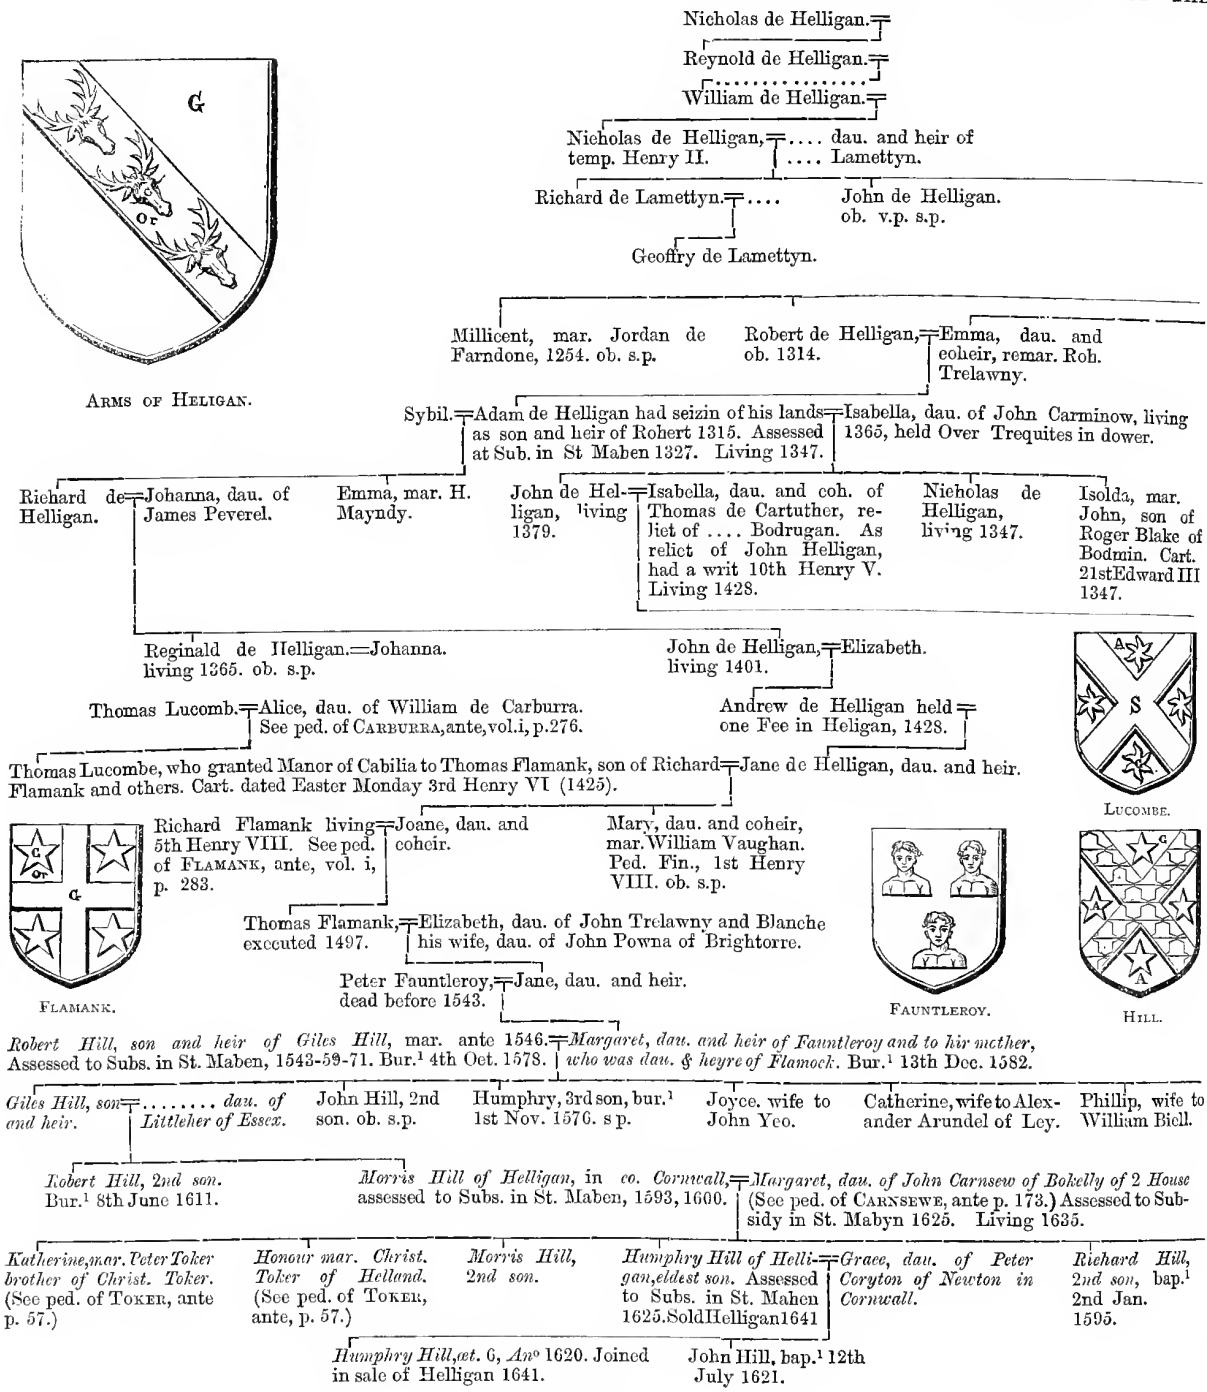 Nicholas de Helligan.
Reynold de Helligan.
William de Helligan.
Nicholas de Helligan, .... dau. and heir of
temp. Henry II. .... Lamettyn.
Richard de Lamettyn. ....
John de Helligan.
ob. v.p. s.p.
Geoffry de Lamettyn.
G
Or
ARMS OF HELIGAN.
Millicent, mar. Jordan de
Farndone, 1254. ob. s.p.
Robert de Helligan,
ob. 1314.
Emma, dau. and
coheir, remar. Rob.
Trelawny.
Sybil.
Adam de Helligan had seizin of his lands
as son and heir of Robert 1315. Assessed
at Sub. in St Maben 1327. Living 1347.
Isabella, dau. of John Carminow, living
1365, held Over Trequites in dower.
Richard de
Helligan.
Johanna, dau. of
James Peverel.
Emma, mar. H.
Mayndy.
John de Hel-
ligan, living
1379.
Isabella, dau. and coh. of
Thomas de Cartuther, re-
lict of .... Bodrugan. As
relict of John Helligan,
had a writ 10th Henry V.
Living 1428.
Nicholas de
Helligan,
living 1347.
Isolda, mar.
John, son of
Roger Blake of
Bodmin. Cart.
21stEdward III
1347.
Reginald de Helligan.
living 1365. ob. s.p.
Johanna.
John de Helligan,
living 1401.
Elizabeth.
Thomas Lucomb.
Alice, dau. of William de Carburra.
See ped. of CARBURRA, ante, vol. i, p. 276.
Andrew de Helligan held
one Fee in Heligan, 1428.
A
S
LUCOMBE.
Thomas Lucombe, who granted Manor of Cabilia to Thomas Flamank, son of Richard
Flamank and others. Cart. dated Easter Monday 3rd Henry VI (1425).
Jane de Helligan, dau. and heir.
G
Or
G
FLAMANK.
Richard Flamank living
5th Henry VIII. See ped.
of FLAMANK, ante, vol. i,
p. 283.
Joane, dau. and
coheir.
Mary, dau. and coheir,
mar. William Vaughan.
Ped. Fin., 1st Henry
VIII. ob. s.p.
FAUNTLEROY.
G
A
A
HILL.
Thomas Flamank,
executed 1497.
Elizabeth, dau. of John Trelawny and Blanche
his wife, dau. of John Powna of Brightorre.
Peter Fauntleroy,
dead before 1543.
Jane, dau. and heir.
Robert Hill, son and heir of Giles Hill, mar. ante 1546.
Assessed to Subs. in St. Maben, 1543-59-71. Bur.¹ 4th Oct. 1578.
Margaret, dau. and heir of Fauntleroy and to hir mother,
who was dau. & heyre of Flamock. Bur.¹ 13th Dec. 1582.
Giles Hill, son
and heir.
........ dau. of
Littleher of Essex.
John Hill, 2nd
son. ob. s.p.
Humphry, 3rd son, bur.¹
1st Nov. 1576. s p.
Joyce. wife to
John Yeo.
Catherine, wife to Alex-
ander Arundel of Ley.
Phillip, wife to
William Biell.
Robert Hill, 2nd son.
Bur.¹ 8th June 1611.
Morris Hill of Helligan, in co. Cornwall,
assessed to Subs. in St. Maben, 1593, 1600.
Margaret, dau. of John Carnsew of Bokelly of 2 House
(See ped. of CARNSEWE, ante p. 173.) Assessed to Sub-
sidy in St. Mabyn 1625. Living 1635.
Katherine, mar. Peter Toker
brother of Christ. Toker.
(See ped. of TOKER, ante
p. 57.)
Honour mar. Christ.
Toker of Helland.
(See ped. of TOKER,
ante, p. 57.)
Morris Hill,
2nd son.
Humphry Hill of Helli-
gan, eldest son. Assessed
to Subs. in St. Maben
1625. Sold Helligan 1641
Grace, dau. of Peter
Coryton of Newton in
Cornwall.
Richard Hill,
2nd son, bap.¹
2nd Jan.
1595.
Humphry Hill, æt. 6, Anº 1620. Joined
in sale of Helligan 1641.
John Hill, bap.¹ 12th
July 1621.